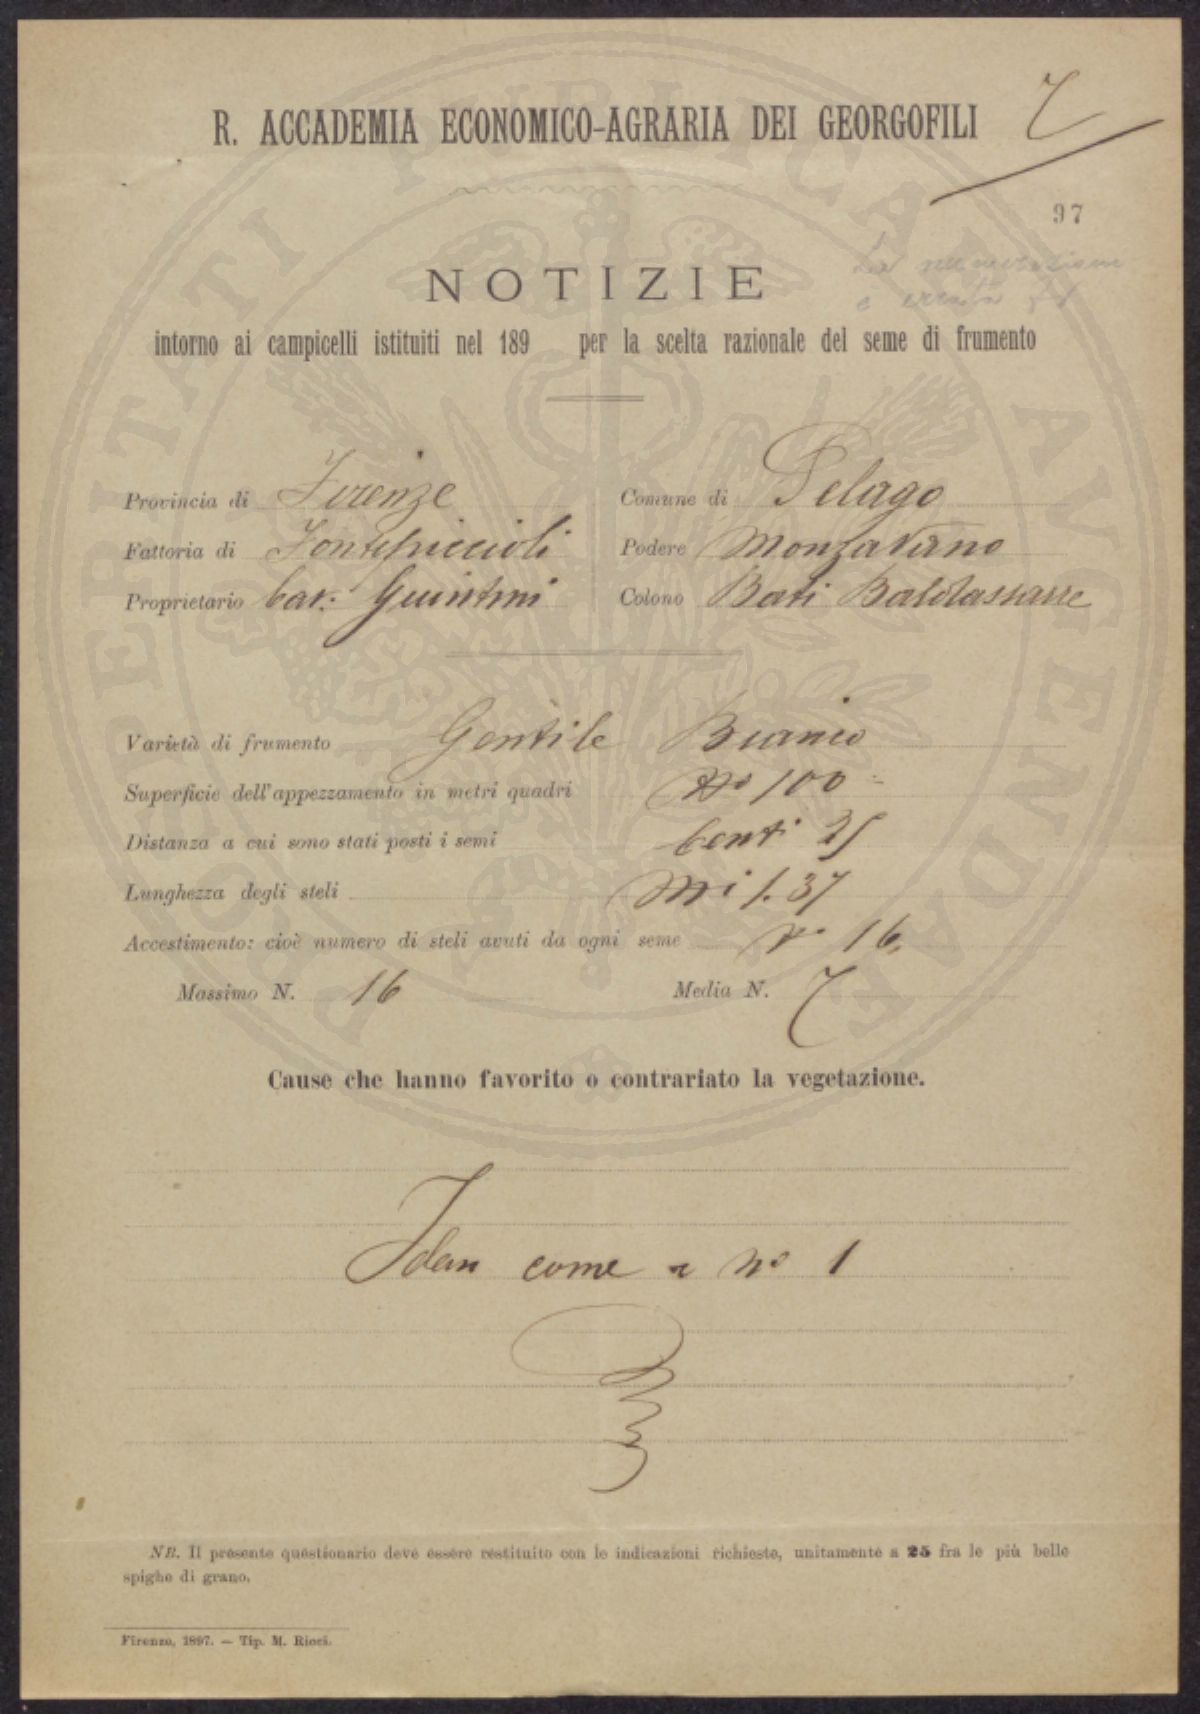 R. ACCADEMIA ECONOMICO-AGRARIA DEI GEORGOFILI
7
97
La numerazione
è errata
NOTIZIE
intorno ai campicelli istituiti nel 189 per la scelta razionale del seme di frumento
Provincia di Firenze Comune di Pelago
Fattoria di Fontepiccioli Podere Monzavano
Proprietario Cav. Guintini Colono Bati Baldassarre
Varietà di frumento Gentile Bianco
Superficie dell'appezzamento in metri quadri No 100
Distanza a cui sono stati posti i semi Centi 25
Lunghezza degli steli Mi 1.37
Accestimento: cioè numero di steli avuti da ogni seme No 16
Massimo N. 16 Media N. 7
Cause che hanno favorito o contrariato la vegetazione.
Idem come a No 1
NB. Il presente questionario deve essere restituito con le indicazioni richieste, unitamente a 25 fra le più belle
spighe di grano.
Firenze, 1897. — Tip. M. Ricci.
PROSPERITATI PUBLICAE AVGENDAE